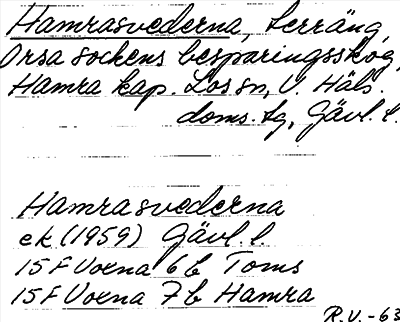 Hamrasvederna, terräng,
Orsa sockens besparingsskog,
Hamra kap. Los sn, V. Häls.
doms. tg, Gävl. l.
Hamrasvederna
ek. (1959) Gävl. l.
15 F Voxna 6 b Toms
15 F Voxna 7 b Hamra
R.V. - 63